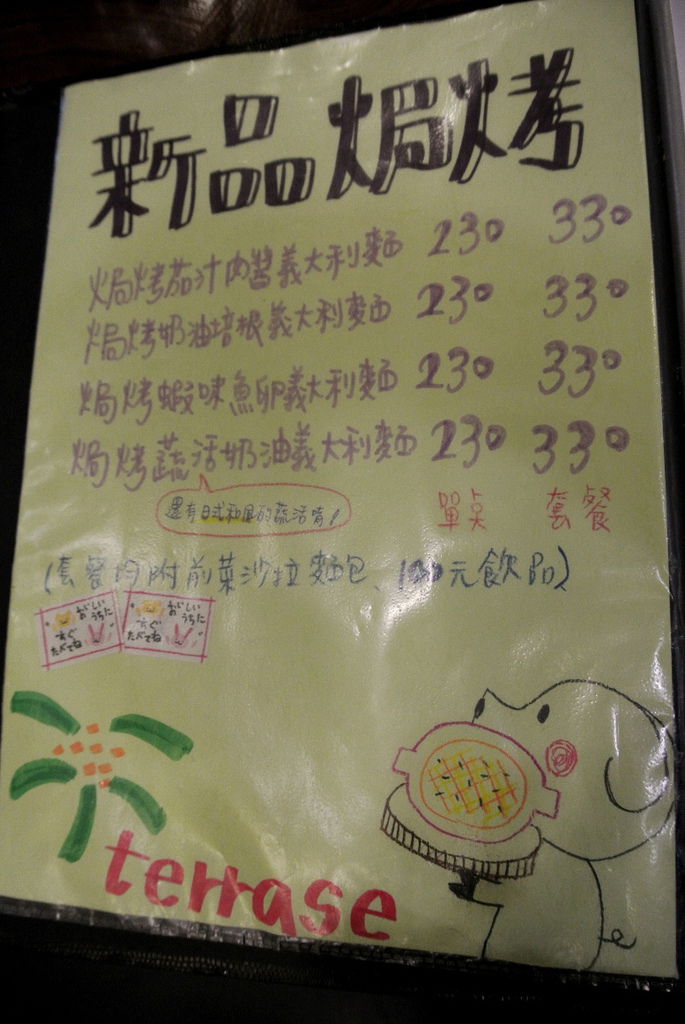 新品焗烤
焗烤茄汁肉醬義大利麵 230 330
焗烤奶油培根義大利麵 230 330
焗烤蝦味魚卵義大利麵 230 330
焗烤蔬活奶油義大利麵 230 330
還有日式和風的蔬活唷!
單点 套餐
(套餐均附前菜沙拉麵包、100元飲品)
おいしい
うちに
すぐ
たべてね
おいしい
うちに
すぐ
たべてね
terrase